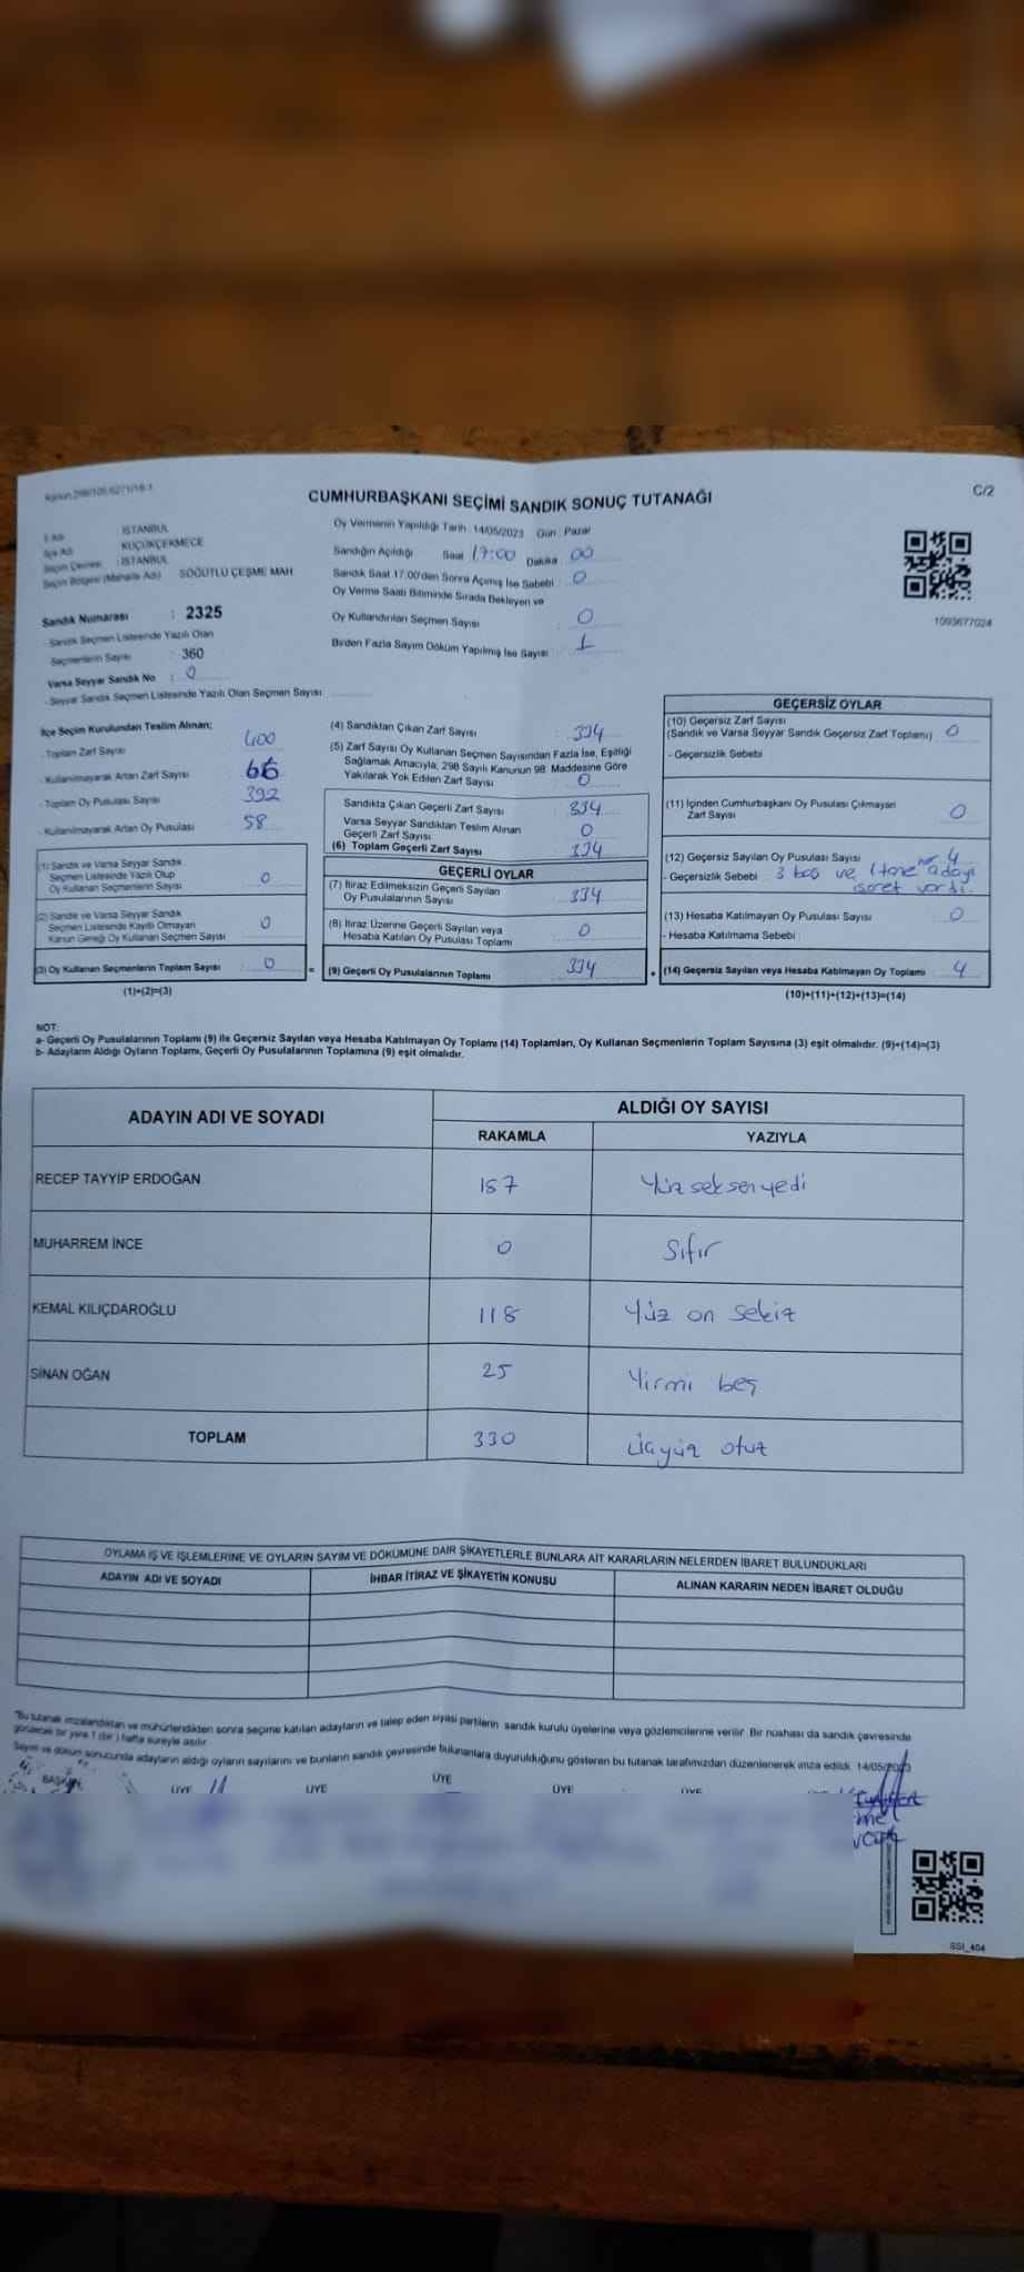 C/2
CUMHURBAŞKANI SEÇİMİ SANDIK SONUÇ TUTANAĞI
Oy Vermenin Yapıldığı Tarih : 14/05/2023 Gün : Pazar
Sandığın Açıldığı Saat 17:00 Dakika 00
Sandık Saat 17.00'den Sonra Açılmış İse Sebebi : 0
Oy Verme Saati Bitiminde Sırada Bekleyen ve
Oy Kullandırılan Seçmen Sayısı 0
Birden Fazla Sayım Döküm Yapılmış İse Sayısı 1
İSTANBUL
İlçe Adı KÜÇÜKÇEKMECE
Seçim Çevresi : İSTANBUL
Seçim Bölgesi (Mahalle Adı) SÖĞÜTLÜ ÇEŞME MAH
1093677024
Sandık Numarası : 2325
Sandık Seçmen Listesinde Yazılı Olan
Seçmenlerin Sayısı 360
Varsa Seyyar Sandık No : 0
- Seyyar Sandık Seçmen Listesinde Yazılı Olan Seçmen Sayısı
İlçe Seçim Kurulundan Teslim Alınan:
- Toplam Zarf Sayısı 400
- Kullanılmayarak Artan Zarf Sayısı 66
- Toplam Oy Pusulası Sayısı 392
- Kullanılmayarak Artan Oy Pusulası 58
(1) Sandık ve Varsa Seyyar Sandık
Seçmen Listesinde Yazılı Olup
Oy Kullanan Seçmenlerin Sayısı 0
(2) Sandık ve Varsa Seyyar Sandık
Seçmen Listesinde Kayıtlı Olmayan
Kanun Gereği Oy Kullanan Seçmen Sayısı 0
(3) Oy Kullanan Seçmenlerin Toplam Sayısı 0
(1)+(2)=(3)
=
(4) Sandıktan Çıkan Zarf Sayısı 334
(5) Zarf Sayısı Oy Kullanan Seçmen Sayısından Fazla İse, Eşitliği
Sağlamak Amacıyla, 298 Sayılı Kanunun 98. Maddesine Göre
Yakılarak Yok Edilen Zarf Sayısı 0
Sandıkta Çıkan Geçerli Zarf Sayısı 334
Varsa Seyyar Sandıktan Teslim Alınan
Geçerli Zarf Sayısı 0
(6) Toplam Geçerli Zarf Sayısı 334
GEÇERLİ OYLAR
(7) İtiraz Edilmeksizin Geçerli Sayılan
Oy Pusulalarının Sayısı 334
(8) İtiraz Üzerine Geçerli Sayılan veya
Hesaba Katılan Oy Pusulası Toplamı 0
(9) Geçerli Oy Pusulalarının Toplamı 334
+
GEÇERSİZ OYLAR
(10) Geçersiz Zarf Sayısı
(Sandık ve Varsa Seyyar Sandık Geçersiz Zarf Toplamı) 0
- Geçersizlik Sebebi
(11) İçinden Cumhurbaşkanı Oy Pusulası Çıkmayan
Zarf Sayısı 0
(12) Geçersiz Sayılan Oy Pusulası Sayısı 4
- Geçersizlik Sebebi 3 boş ve 1 tane her adayı
işaret vardı.
(13) Hesaba Katılmayan Oy Pusulası Sayısı 0
- Hesaba Katılmama Sebebi
(14) Geçersiz Sayılan veya Hesaba Katılmayan Oy Toplamı 4
(10)+(11)+(12)+(13)=(14)
NOT:
a- Geçerli Oy Pusulalarının Toplamı (9) ile Geçersiz Sayılan veya Hesaba Katılmayan Oy Toplamı (14) Toplamları, Oy Kullanan Seçmenlerin Toplam Sayısına (3) eşit olmalıdır. (9)+(14)=(3)
b- Adayların Aldığı Oyların Toplamı, Geçerli Oy Pusulalarının Toplamına (9) eşit olmalıdır.
ADAYIN ADI VE SOYADI ALDIĞI OY SAYISI
RAKAMLA YAZIYLA
RECEP TAYYİP ERDOĞAN 187 Yüz seksen yedi
MUHARREM İNCE 0 Sıfır
KEMAL KILIÇDAROĞLU 118 Yüz on sekiz
SİNAN OĞAN 25 Yirmi beş
TOPLAM 330 üçyüz otuz
OYLAMA İŞ VE İŞLEMLERİNE VE OYLARIN SAYIM VE DÖKÜMÜNE DAİR ŞİKAYETLERLE BUNLARA AİT KARARLARIN NELERDEN İBARET BULUNDUKLARI
ADAYIN ADI VE SOYADI İHBAR İTİRAZ VE ŞİKAYETİN KONUSU ALINAN KARARIN NEDEN İBARET OLDUĞU
"Bu tutanak imzalandıktan ve mühürlendikten sonra seçime katılan adayların ve talep eden siyasi partilerin sandık kurulu üyelerine veya gözlemcilerine verilir. Bir nüshası da sandık çevresinde
görülecek bir yere 1 (bir) hafta süreyle asılır.
Sayım ve döküm sonucunda adayların aldığı oyların sayılarını ve bunların sandık çevresinde bulunanlara duyurulduğunu gösteren bu tutanak tarafımızdan düzenlenerek imza edildi. 14/05/2023
BAŞKAN ÜYE ÜYE ÜYE ÜYE ÜYE
SSI_404